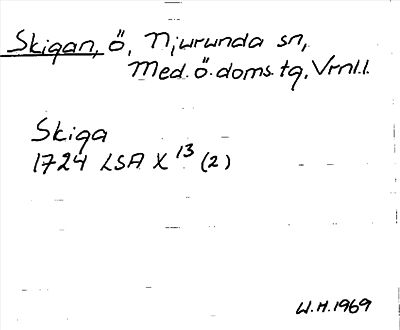 Skigan, ö, Njurunda sn,
Med. ö. doms. tg, Vrnl.l.
Skiga
1724 LSA X 13 (2)
W.H. 1969